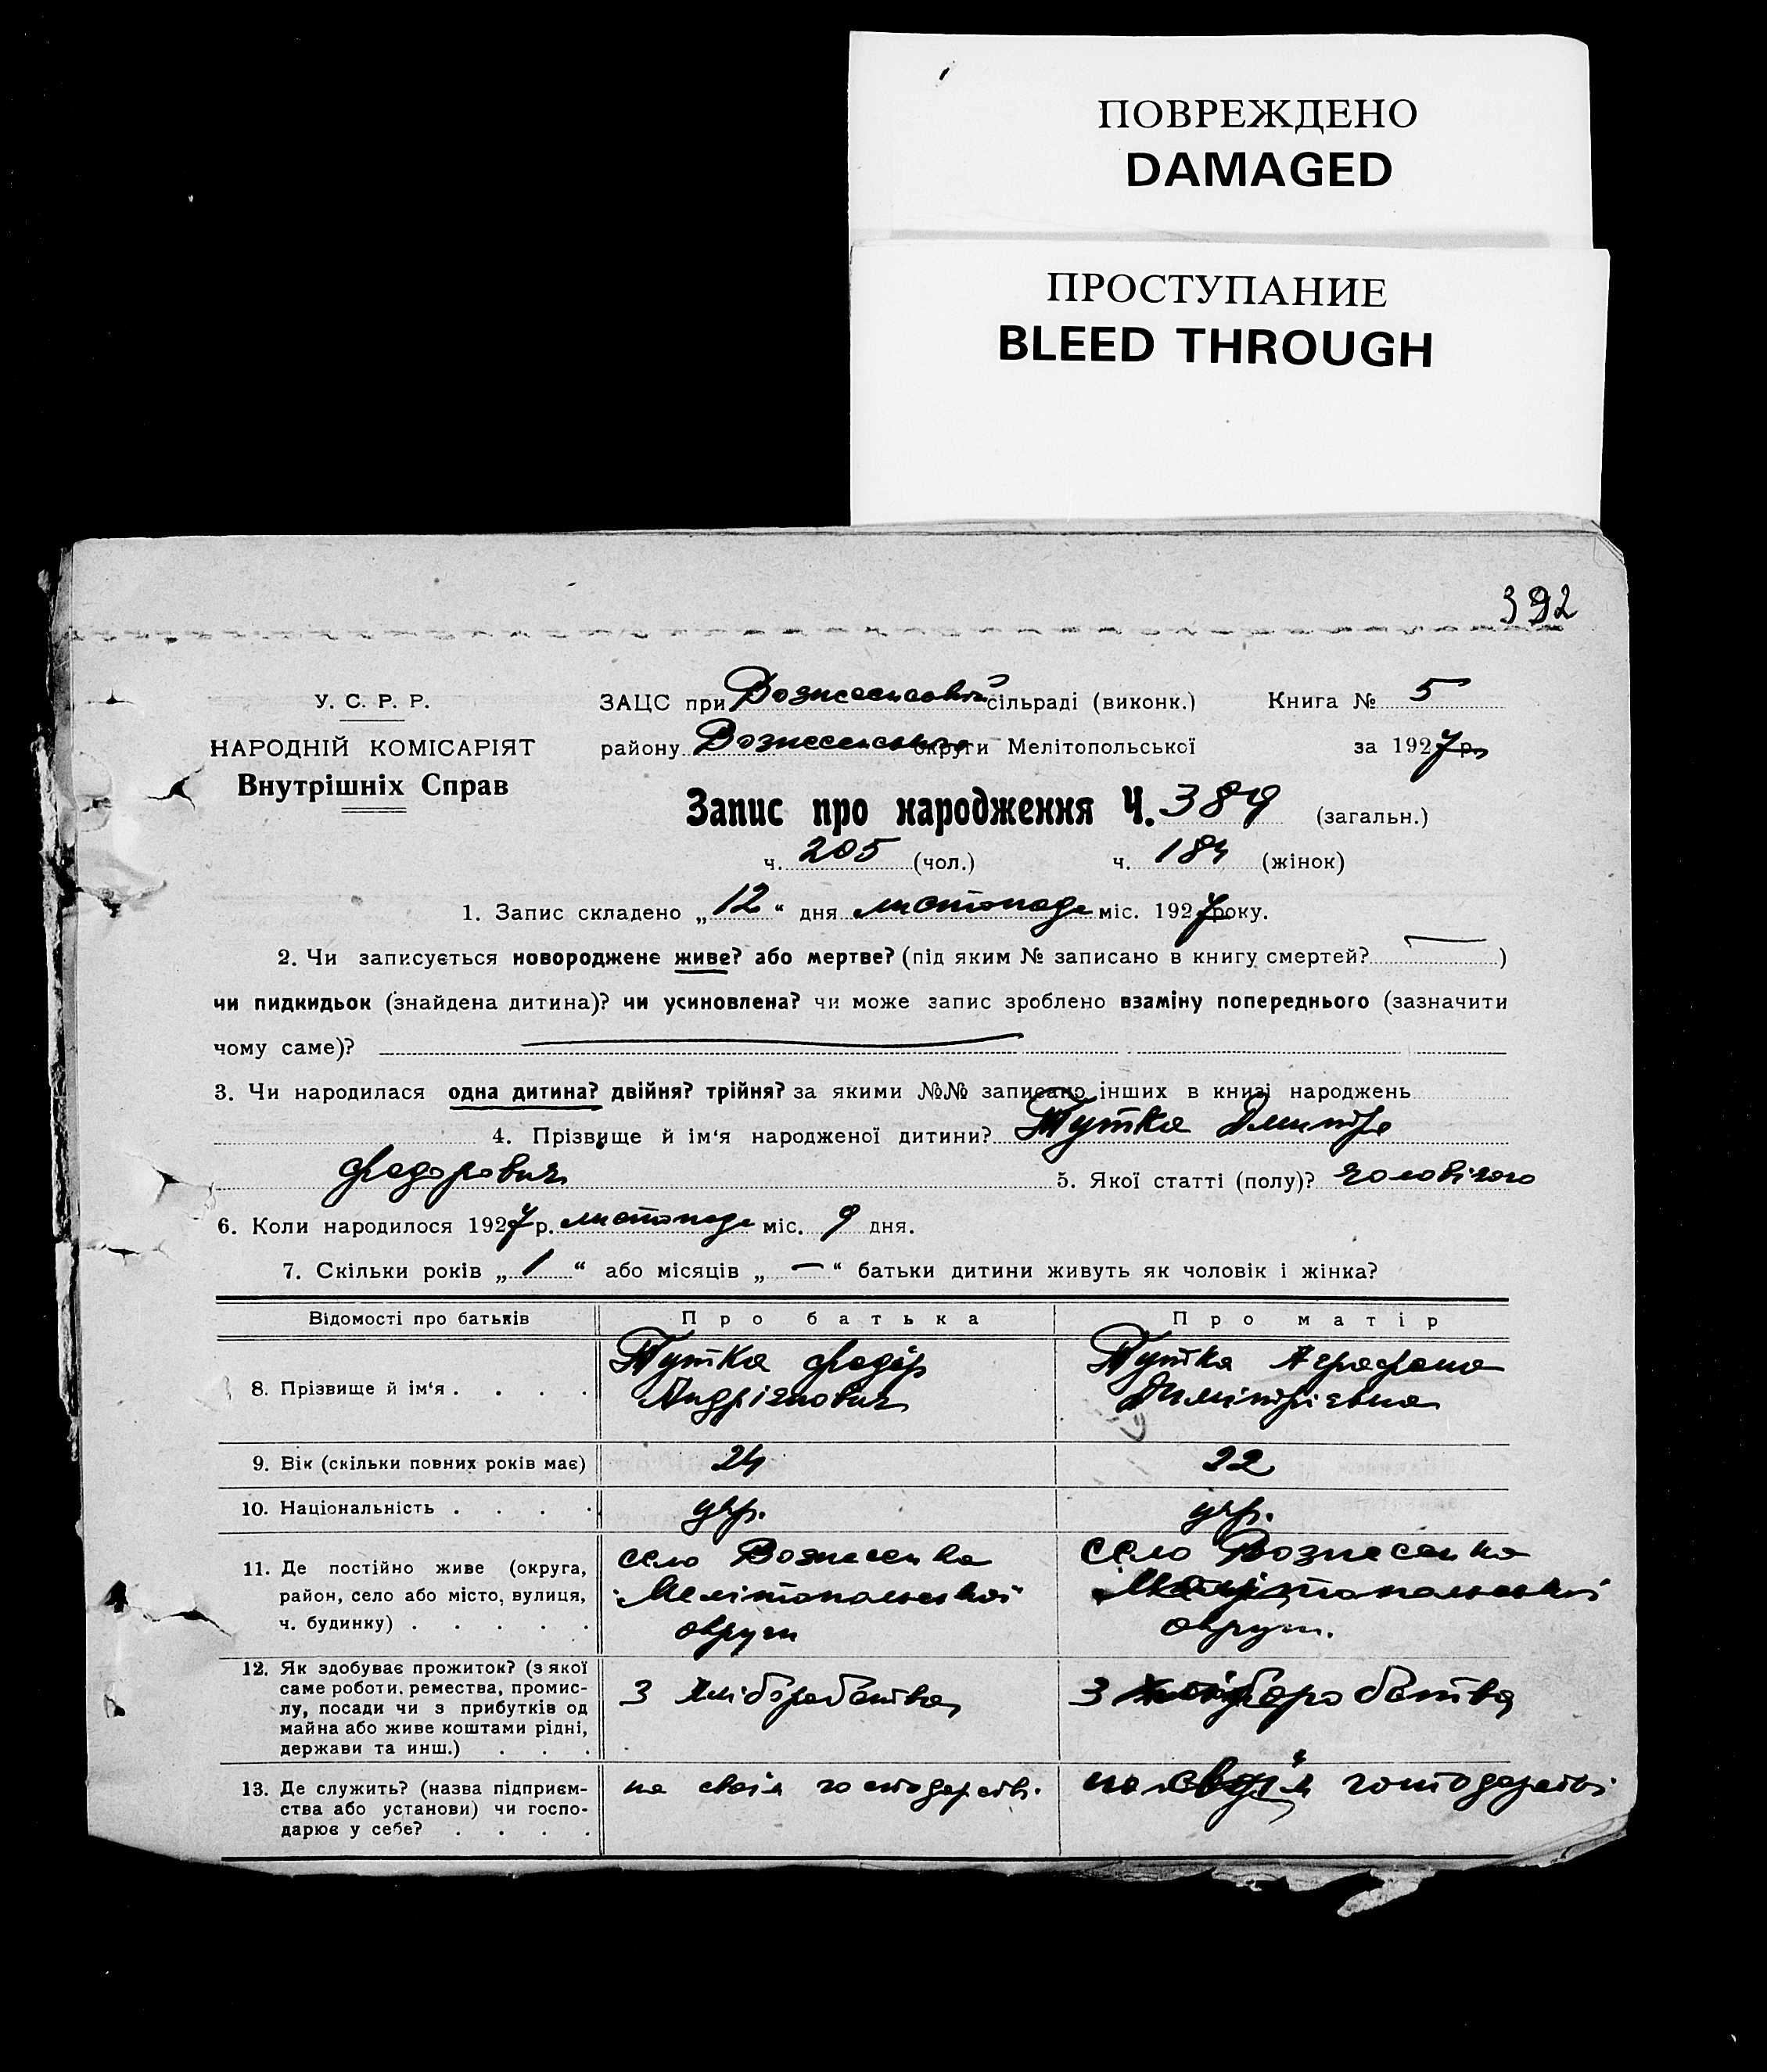 ПОВРЕЖДЕНО
DAMAGED
ПРОСТУПАНИЕ
BLEED THROUGH
392
У. С. Р. Р.
НАРОДНІЙ КОМІСАРІЯТ
Внутрішніх Справ
ЗАЦС при Вознесенській сільраді (виконк.) Книга № 5
району Вознесенського округи Мелітопольської за 1927 р.
Запис про народження Ч. 389 (загальн.)
ч. 205 (чол.) ч. 184 (жінок)
1. Запис складено „12“ дня листопада міс. 1927 року.
2. Чи записується новороджене живе? або мертве? (під яким № записано в книгу смертей? — )
чи пидкидьок (знайдена дитина)? чи усиновлена? чи може запис зроблено взаміну попереднього (зазначити
чому саме)?
3. Чи народилася одна дитина? двійня? трійня? за якими №№ записано інших в книзі народжень
4. Прізвище й ім‘я народженої дитини? Тутка Дмитро
Федорович 5. Якої статті (полу)? чоловічого
6. Коли народилося 1927 р. листопада міс. 9 дня.
7. Скільки років „1“ або місяців „—“ батьки дитини живуть як чоловік і жінка?
Відомості про батьків Про батька Про матір
8. Прізвище й ім‘я . . . . Тутка Федір Андріянович Тутка Аграфена Дімітрієвна
9. Вік (скільки повних років має) 24 22
10. Національність . . . . укр. укр.
11. Де постійно живе (округа, район, село або місто, вулиця, ч. будинку) . . . . . село Вознесенка Мелітопольської округи село Вознесенка Мелітопольської округи.
12. Як здобуває прожиток? (з якої саме роботи, ремества, промислу, посади чи з прибутків од майна або живе коштами рідні, держави та инш.) . . . З хліборобства З хліборобства
13. Де служить? (назва підприємства або установи) чи господарює у себе? . . . . на своїм господарстві. на своїм господарстві